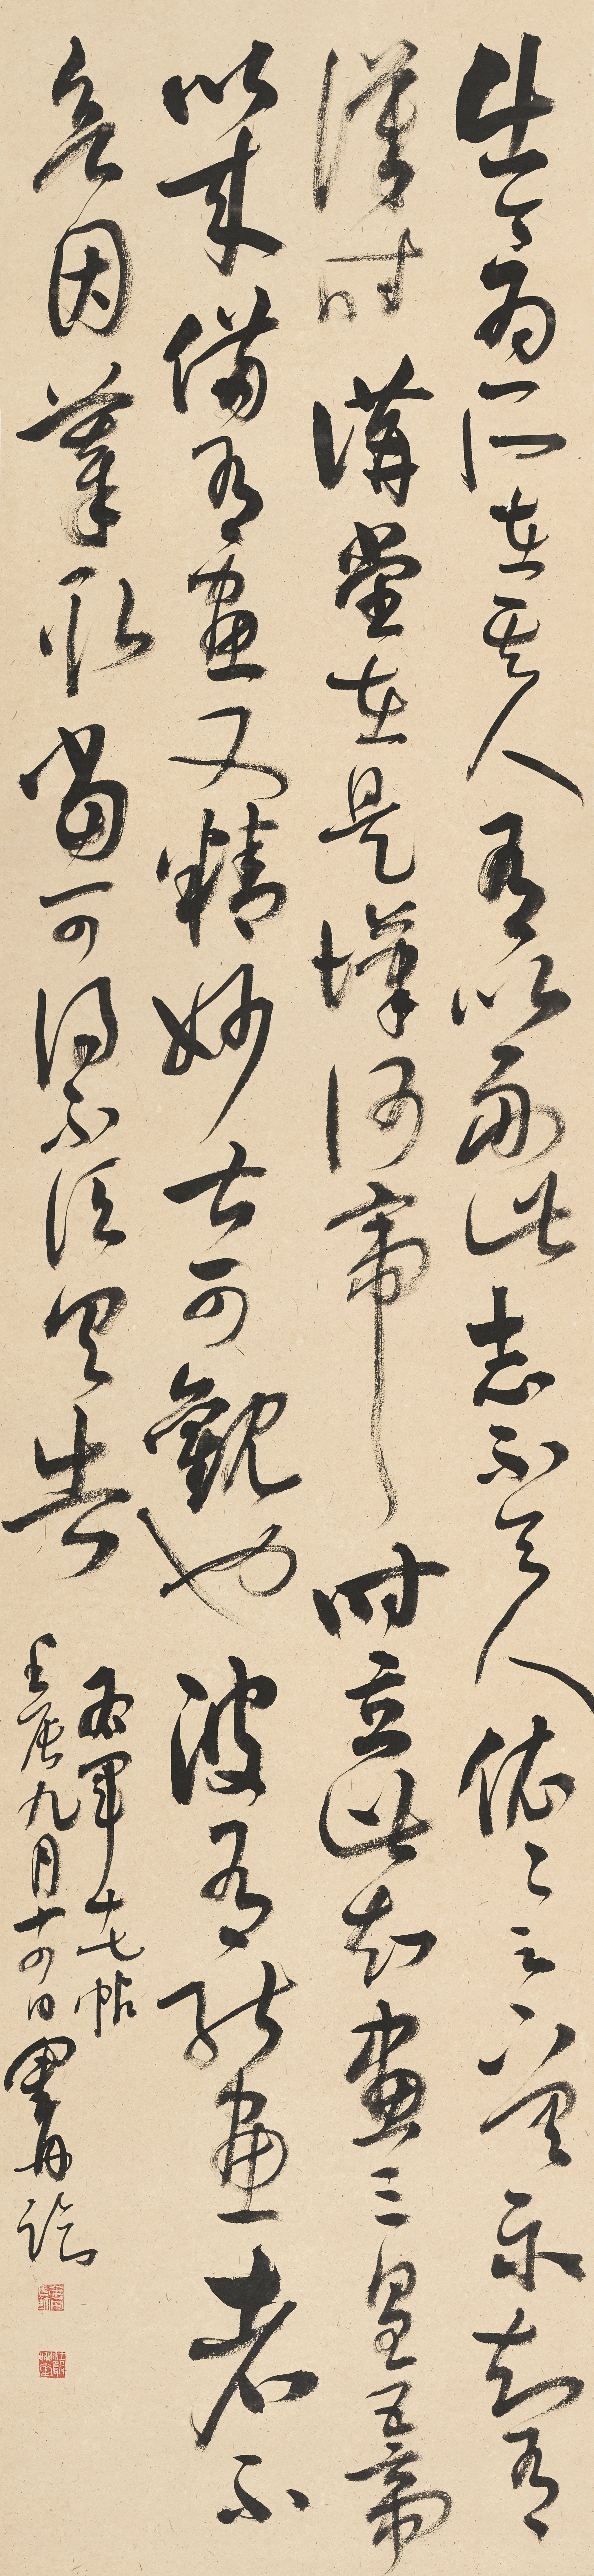 出今為所在其人有以副此志不令人依〻足下具示知有
漢時講堂在是漢何帝時立此知畫三皇五帝
以來備有畫又精妙甚可觀也彼有能畫者不
欲因摹取當可得不須具告
右軍十七帖
壬辰九月十四日臨